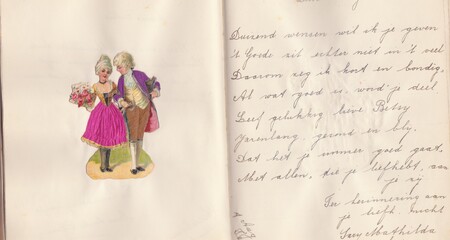 Duizend wensen wil ik je geven
't Goede zit echter niet in 't veel
Daarom zeg ik kort en bondig,
Al wat goed is, word' je deel.
Leef gelukkig lieve Betsy
Jarenlang, gezond en blij.
Dat het je immer goed gaat,
Met allen, die je liefhebt, aan
je zij
Ter herinnering aan
je liefh. nicht
Mathilda